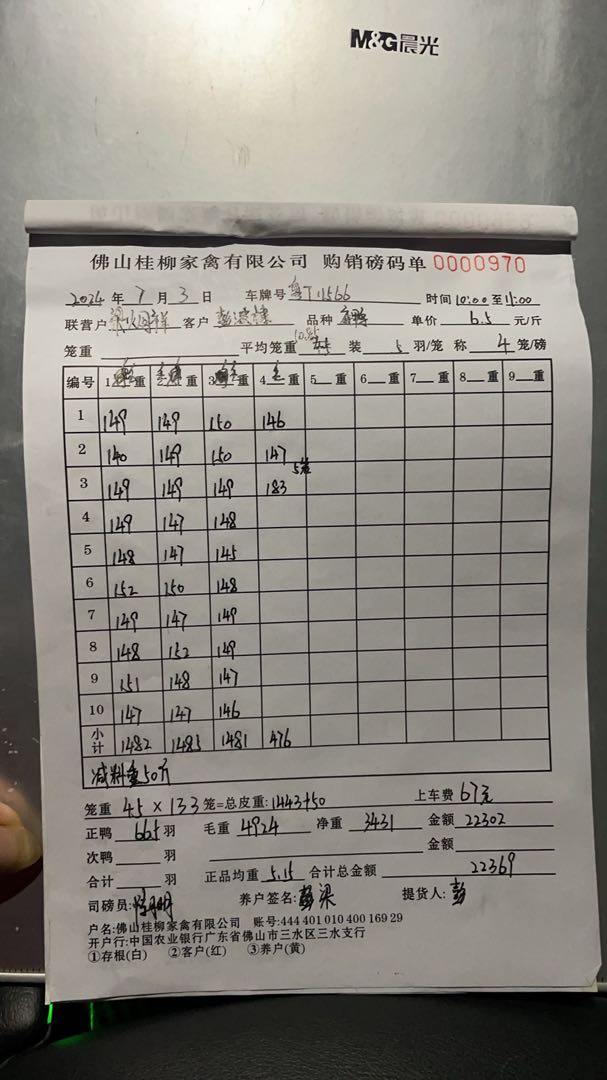 M&G晨光
佛山桂柳家禽有限公司 购销磅码单 0000970
2024年 7月 3日 车牌号 粤T11566 时间 10:00至11:00
联营户 客户 品种 单价 6.5 元/斤
笼重 平均笼重 10.85 装 5 羽/笼 称 4 笼/磅
编号 1 重 2 重 3 重 4 重 5 重 6 重 7 重 8 重 9 重
1 149 149 150 146
2 140 149 150 147
3 149 149 149 5笼 183
4 149 147 148
5 148 147 145
6 152 150 148
7 149 147 149
8 148 152 149
9 151 148 147
10 147 147 146
小计 1482 1485 1481 476
减料重50斤
笼重 × 133 笼=总皮重: 1443+50 上车费 67元
正鸭 665 羽 毛重 4924 净重 3431 金额 22302
次鸭 羽 金额
合计 羽 正品均重 5.15 合计总金额 22369
司磅员: 养户签名: 彭梁 提货人: 彭
户名:佛山桂柳家禽有限公司 账号:444 401 010 400 169 29
开户行:中国农业银行广东省佛山市三水区三水支行
①存根(白) ②客户(红) ③养户(黄)